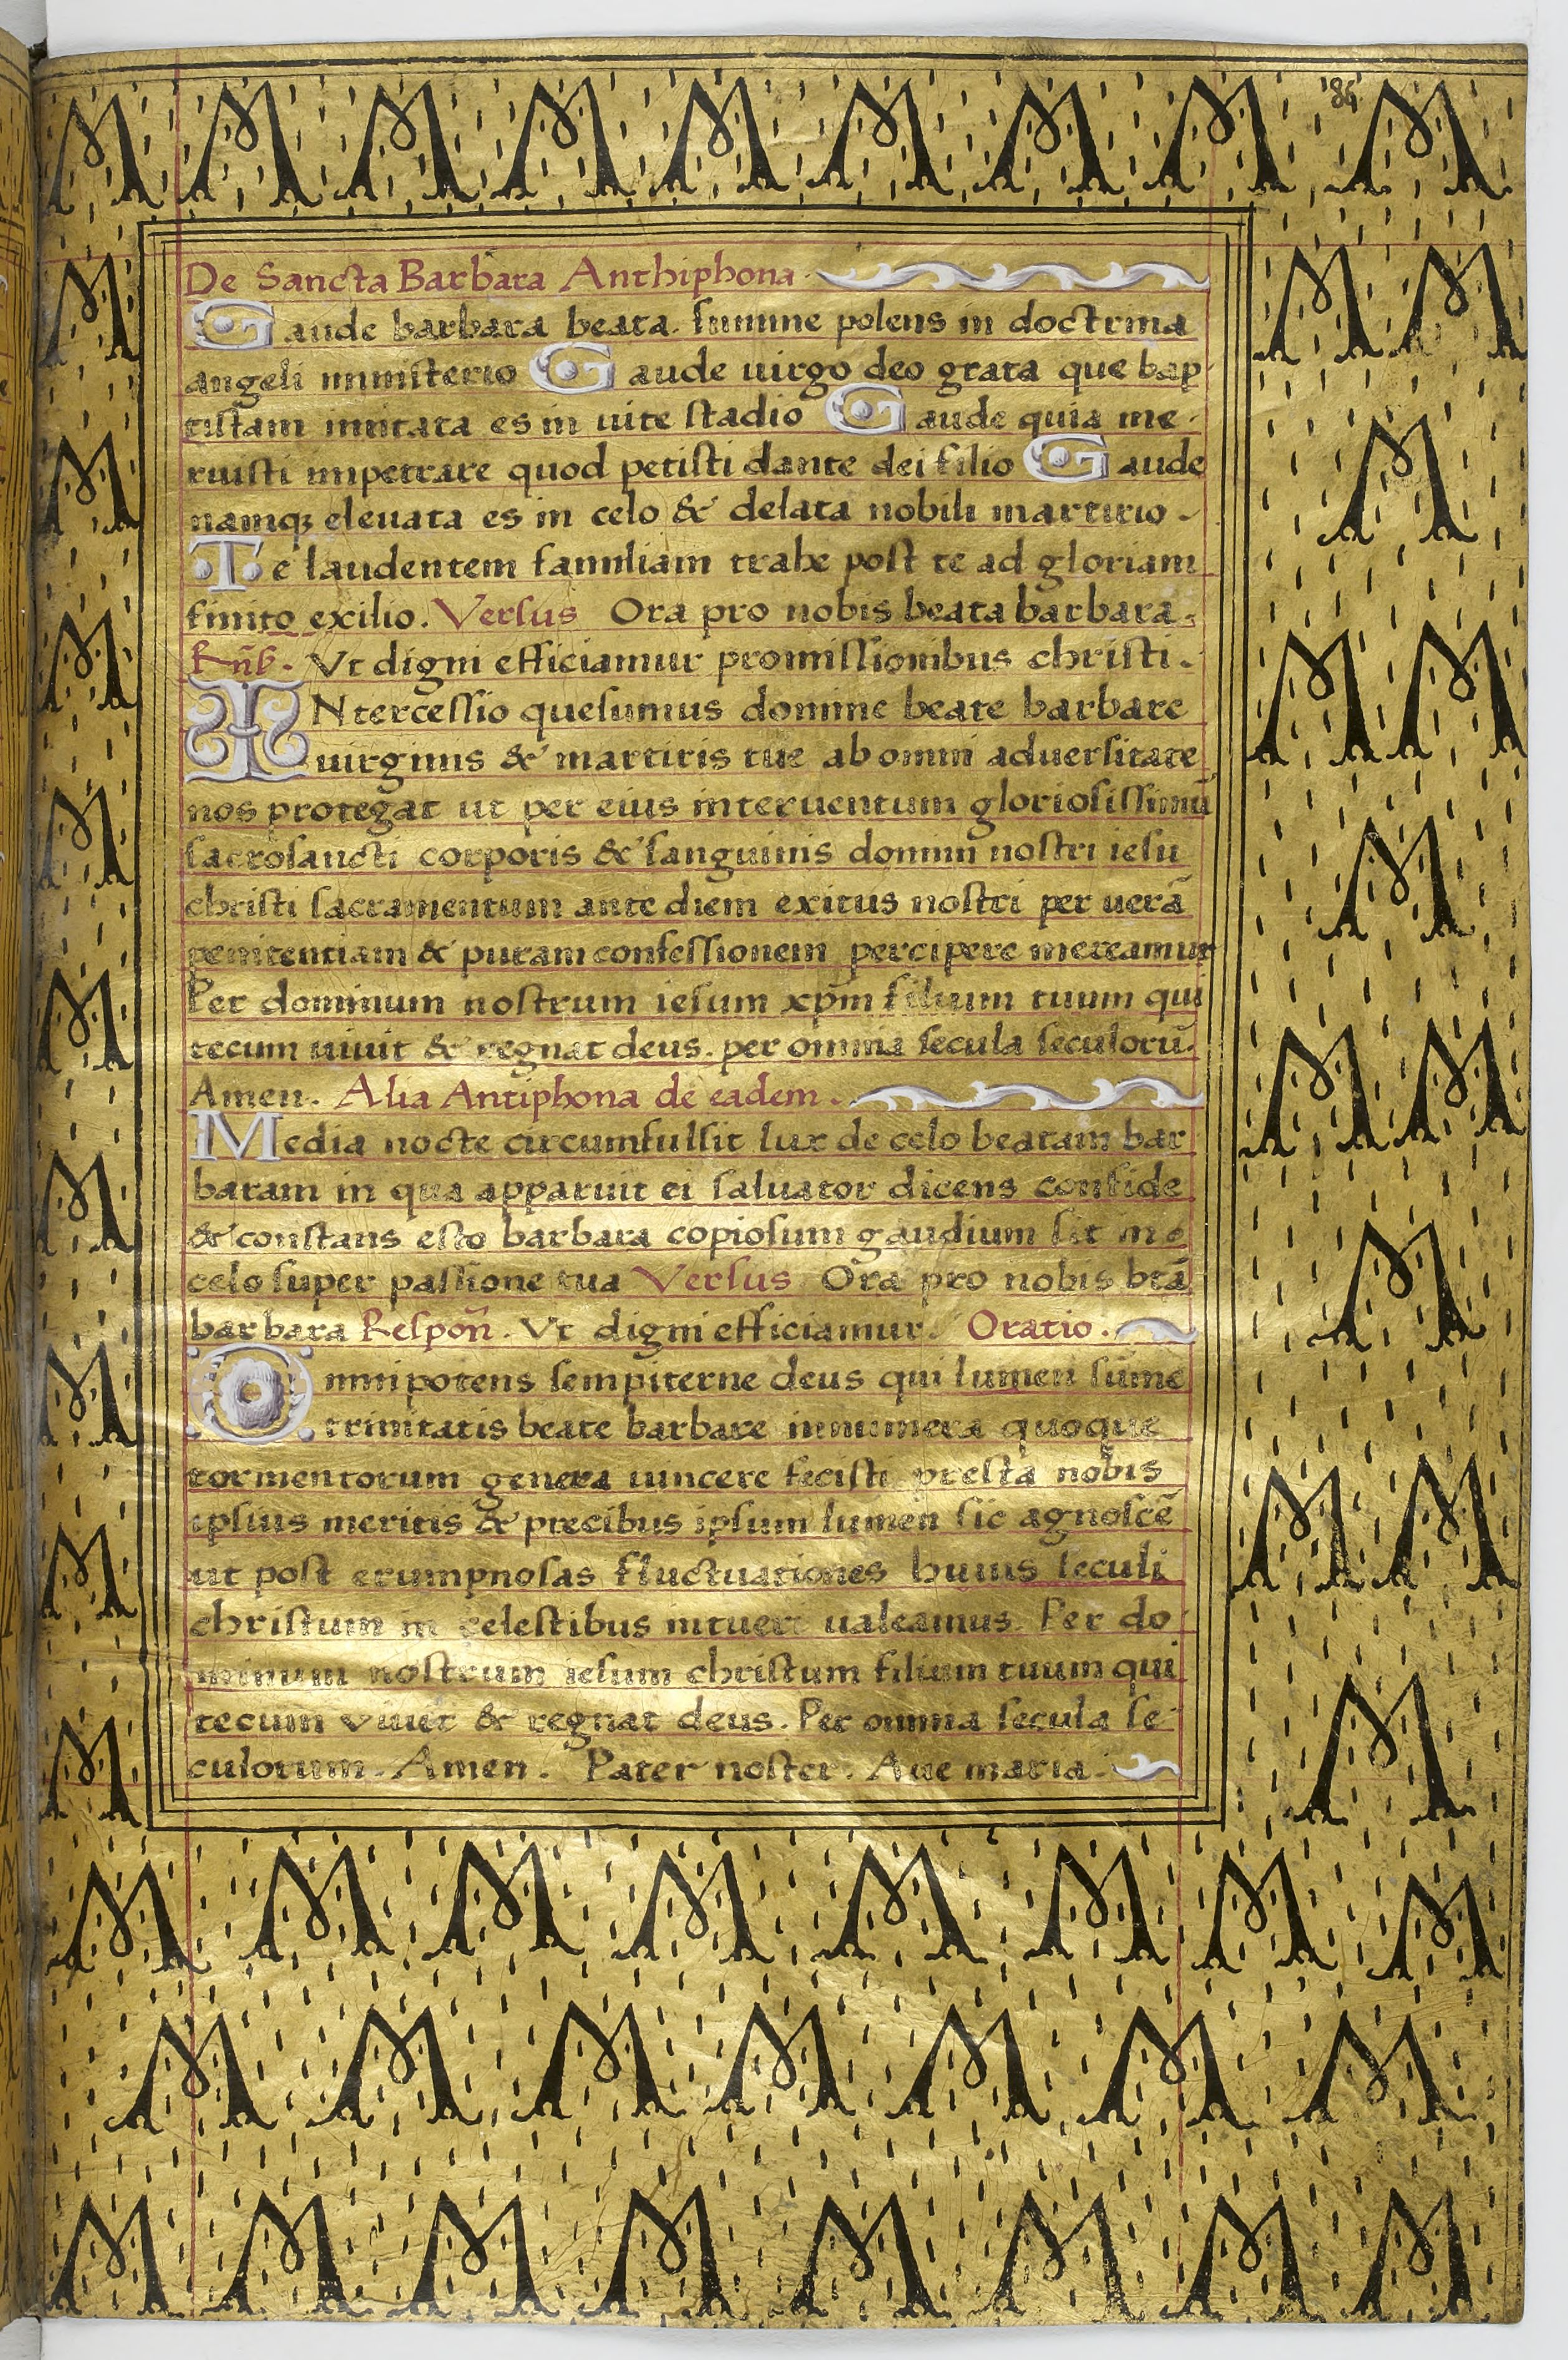 De Sancta Barbara Anthiphona
Gaude barbara beata. summe polens in doctrina
angeli ministerio Gaude uirgo deo grata que bap
tistam imitata es in uite stadio Gaude quia me
ruisti impetrare quod petisti dante dei filio Gaude
namqꝫ eleuata es in celo & delata nobili martirio.
Te laudentem familiam trahe post te ad gloriam
finito exilio. Versus Ora pro nobis beata barbara.
Vt digni efficiamur promissionibus christi.
INtercessio quesumus domine beate barbare
uirginis & martiris tue ab omni aduersitate
nos protegat ut per eius interuentum gloriosissimū
sacrosancti corporis & sanguinis domini nostri iesu
christi sacramentum ante diem exitus nostri per uerā
penitentiam & puram confessionem percipere mereamur
Per dominum nostrum iesum xp̄m filium tuum qui
tecum uiuit & regnat deus. per omnia secula seculorū.
Amen. Alia Antiphona de eadem.
Media nocte circumfulsit lux de celo beatam bar
baram in qua apparuit ei saluator dicens confide
& constans esto barbara copiosum gaudium sit in
celo super passione tua Versus Ora pro nobis btā
barbara Respoñ. Vt digni efficiamur. Oratio.
Omnipotens sempiterne deus qui lumen sūme
trinitatis beate barbare innumera quoque
tormentorum genera uincere fecisti presta nobis
ipsius meritis & precibus ipsum lumen sic agnoscē
ut post erumpnosas fluctuationes huius seculi
christum in celestibus intueri ualeamus. Per do
minum nostrum iesum christum filium tuum qui
tecum viuit & regnat deus. Per omnia secula se
culorum. Amen. Pater noster. Aue maria.